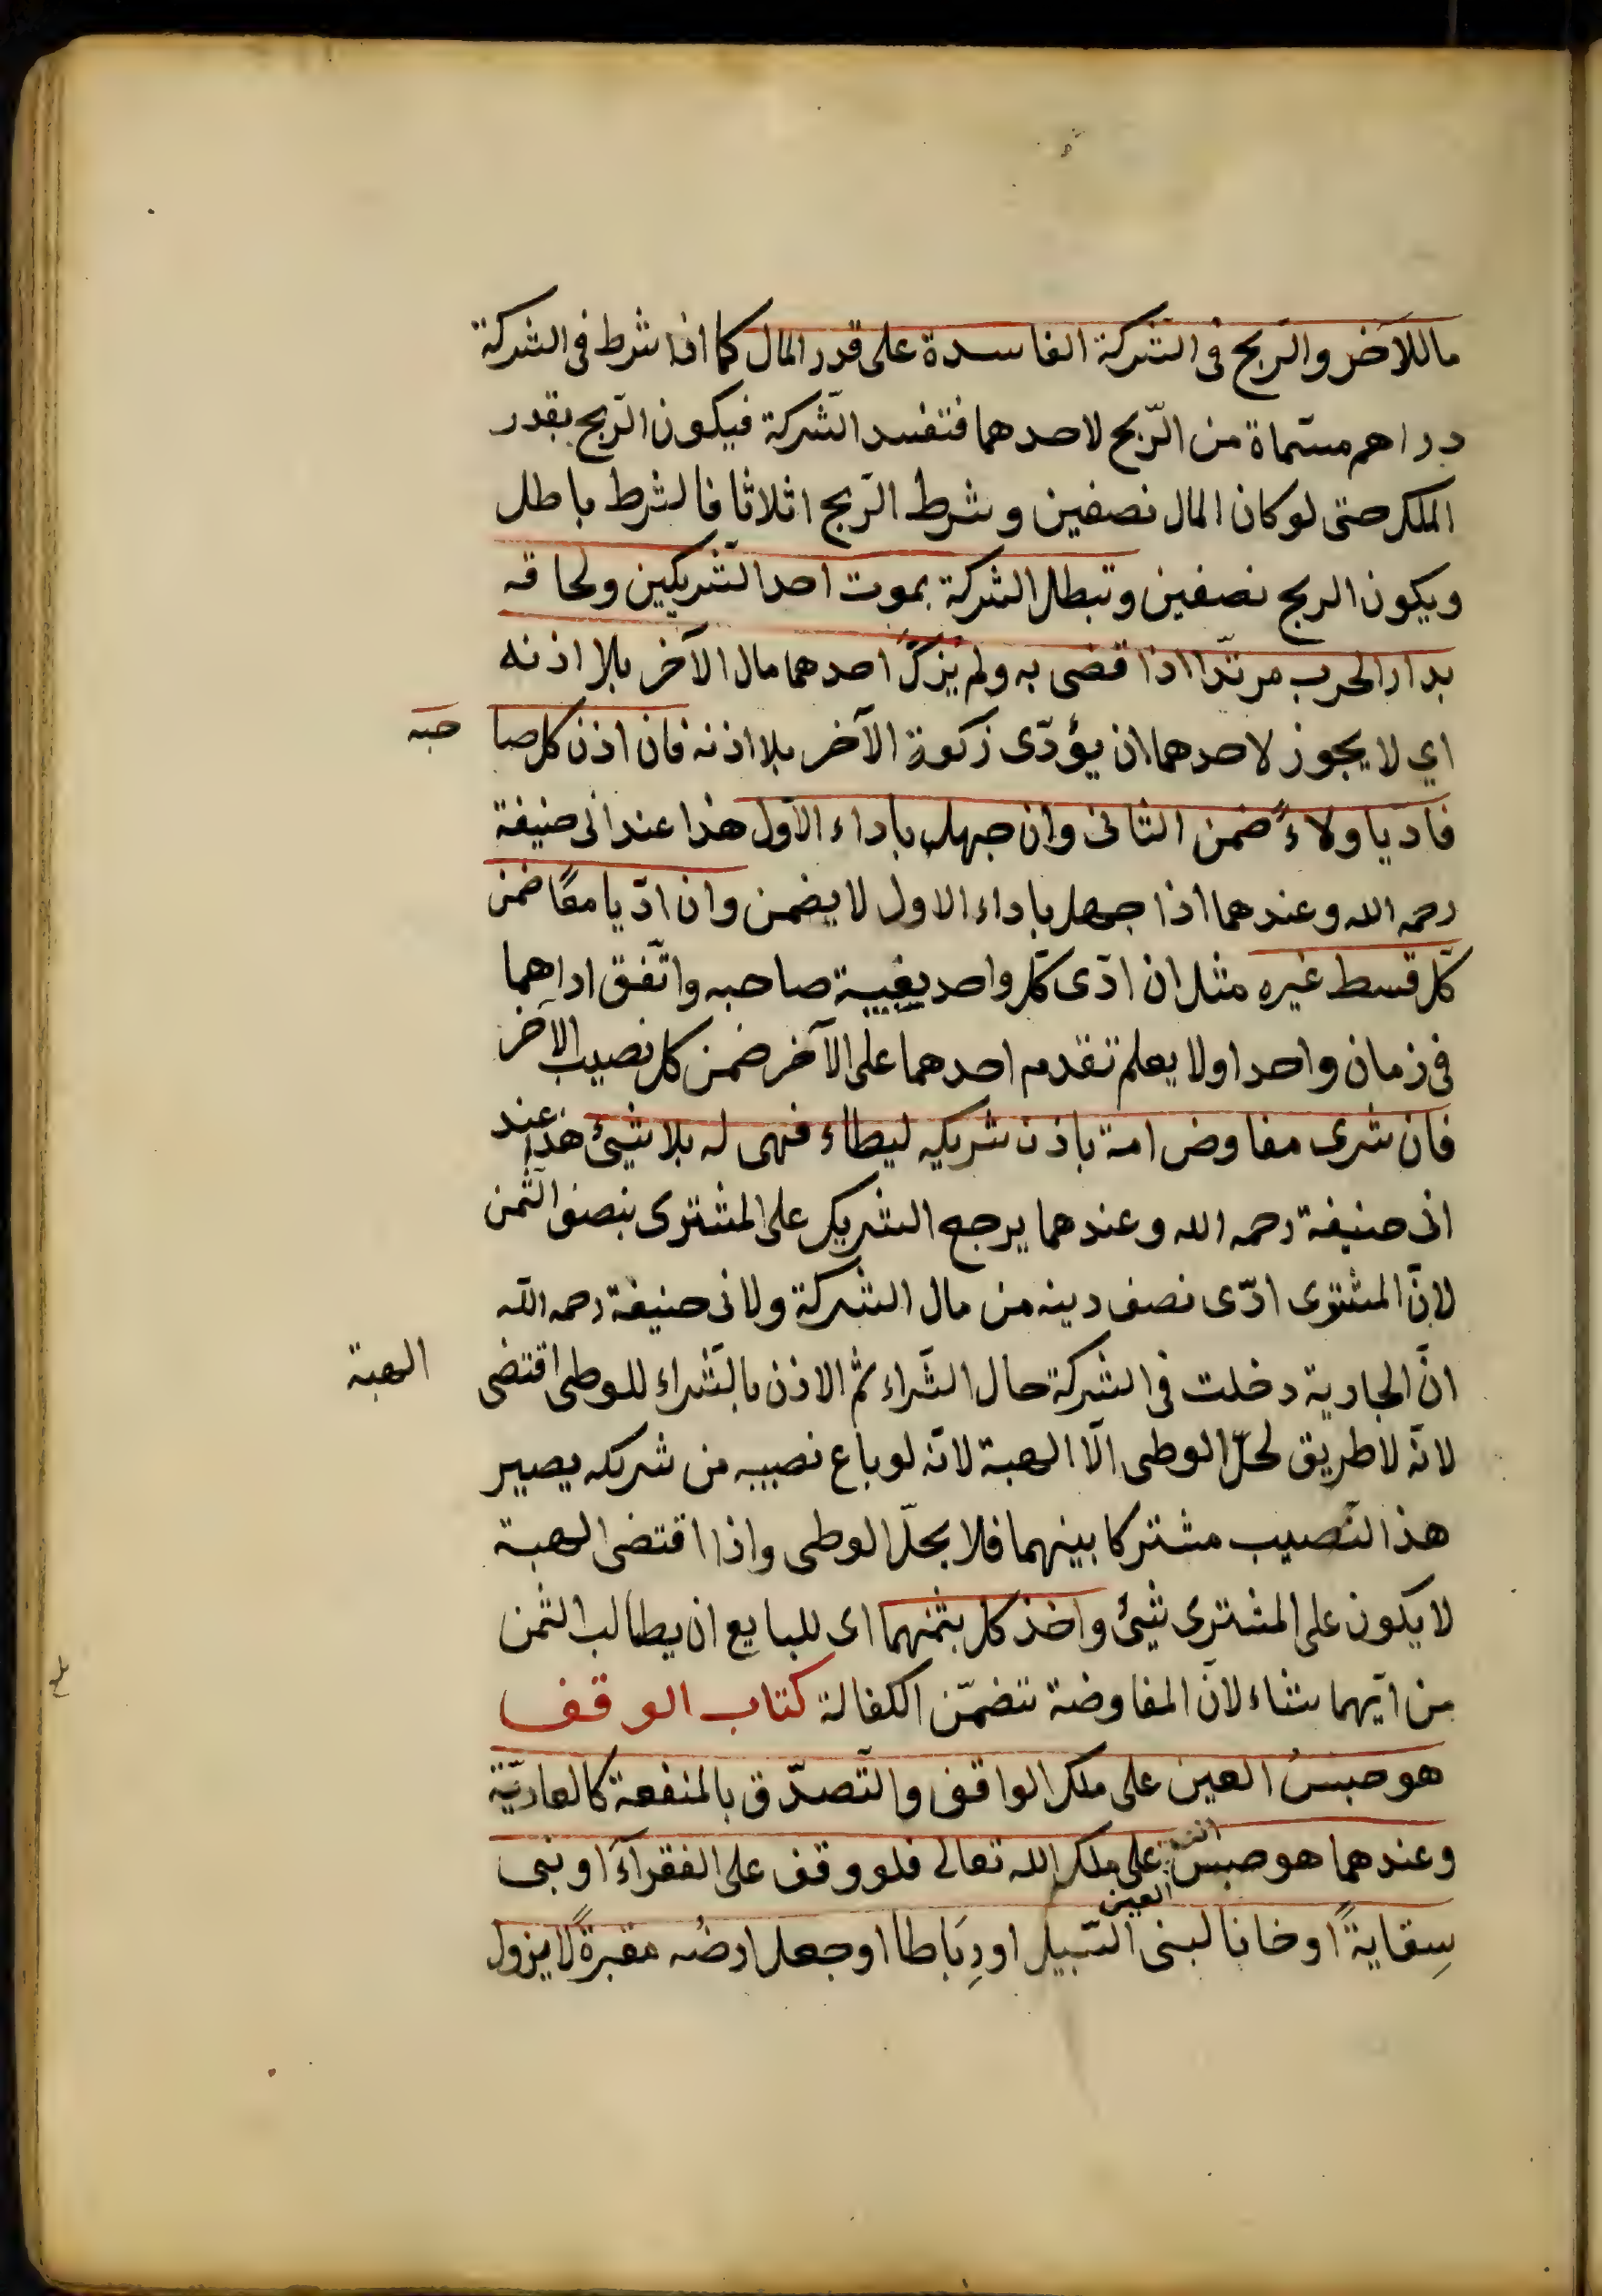 ماللآخر والربح فى الشركة الفاسدة على قدر المال كما اذا شرط فى الشركة
دراهم مسماة من الربح لاحدهما فتفسد الشركة فيكون الربح بقدر
الملك حتى لو كان المال نصفين وشرط الربح اثلاثا فالشرط باطل
ويكون الربح نصفين وتبطل الشركة بموت احد الشريكين ولحاقه
بدار الحرب مرتدا اذا قضى به ولم يزكّ احدهما مال الآخر بلا اذنه
اي لا يجوز لاحدهما ان يؤدّى زكوة الآخر بلا اذنه فان اذن كل صا حبه
فادّيا ولاءً ضمن الثانى وان جهل باداء الاول هذا عند ابى حنيفة
رحمه الله وعندهما اذا جهل باداء الاول لا يضمن وان ادّيا معًا ضمن
كلّ قسط غيره مثل ان ادّى كلّ واحد بغيبة صاحبه واتّفق اداهما
فى زمان واحد او لا يعلم تقدم احدهما على الآخر ضمن كل نصيب الآخر
فان شرى مفاوض امة باذن شريكه ليطاء فهى له بلا شيئ هذا عند
ابى حنيفة رحمه الله وعندهما يرجع الشريك على المشترى بنصف الثّمن
لانّ المشترى ادّى نصف دينه من مال الشركة ولابى حنيفة رحمه اللّه
انّ الجارية دخلت فى الشركة حال الشّراء ثم الاذن بالشّراء للوطى اقتضى الهبة
لانّه لا طريق لحلّ الوطى الّا الهبة لانّه لو باع نصيبه من شريكه يصير
هذا النّصيب مشتركا بينهما فلا يحلّ الوطى واذا اقتضى الهبة
لا يكون على المشترى شيئ واخذ كل بثمنهما اى للبايع ان يطالب الثمن
من ايّهما شاء لانّ المفاوضة تتضمّن الكفالة كتاب الوقف
هو حبسُ العين على ملك الواقف والتّصدّق بالمنفعة كالعاريّة
وعندهما هو حبس العين على ملك الله تعالى فلو وقف على الفقرآء او بنى
سِقايةً او خانا لبنى السّبيل او رِبَاطا او جعل ارضُه مقبرةً لا يزول